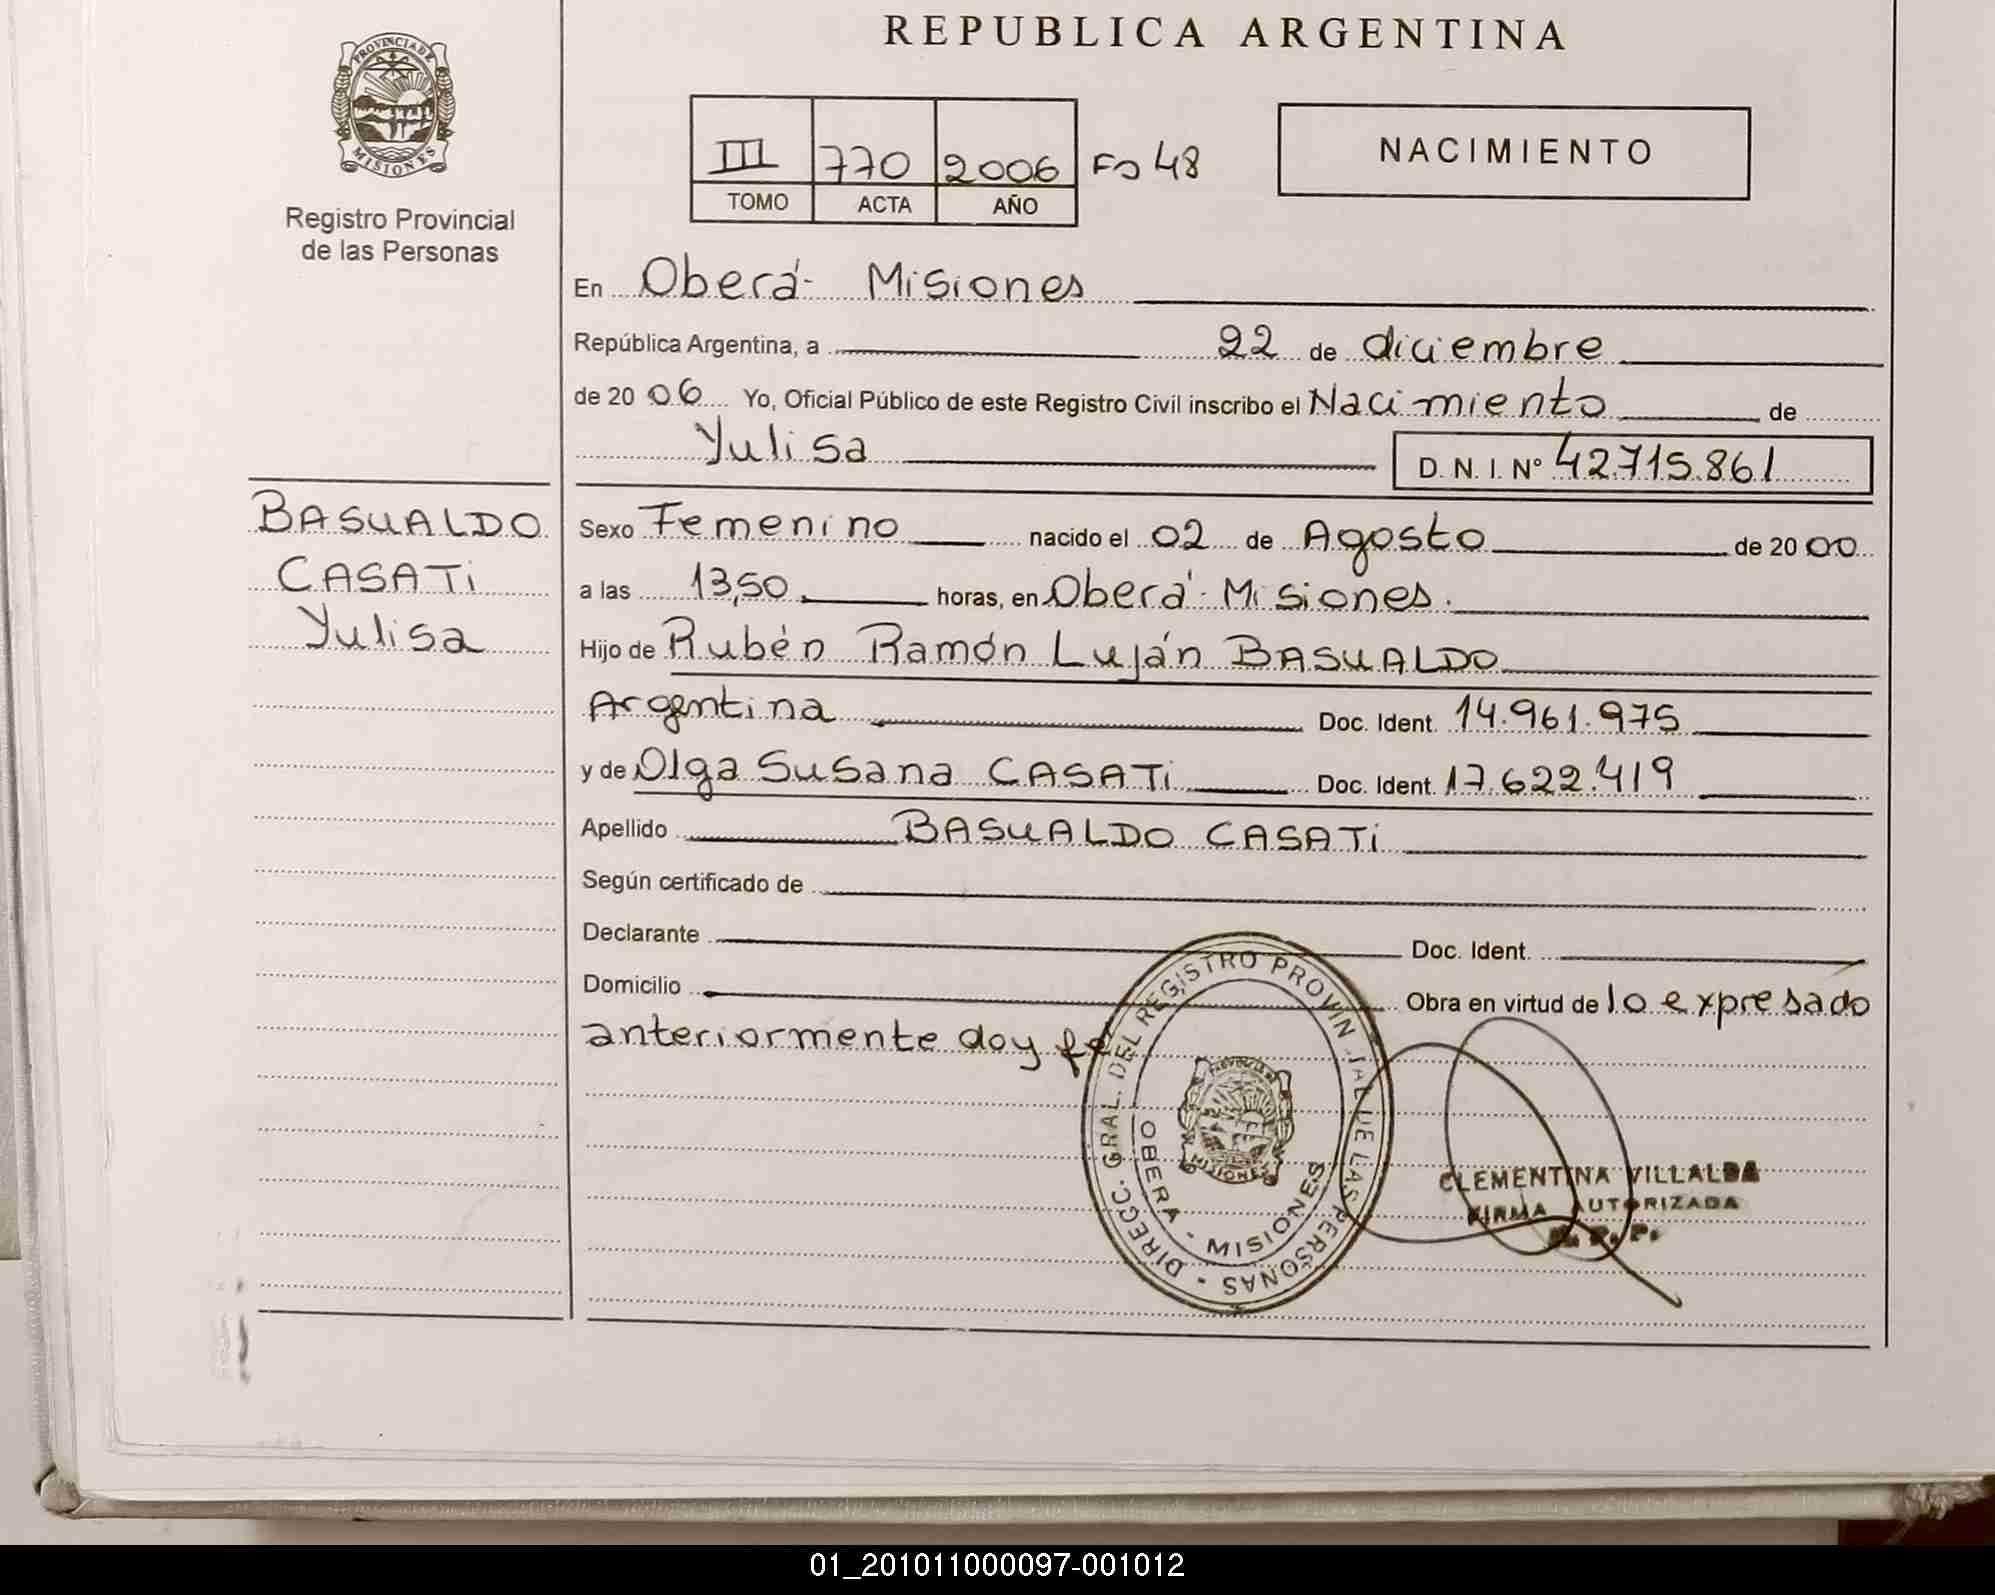 REPUBLICA ARGENTINA
PROVINCIA DE
MISIONES
Registro Provincial
de las Personas
III 770 2006 Fo 48
TOMO ACTA AÑO
NACIMIENTO
En Oberá - Misiones
República Argentina, a 22 de diciembre
de 2006 Yo, Oficial Público de este Registro Civil inscribo el Nacimiento de
Yulisa D. N. I. Nº 42.715.861
BASUALDO
CASATi
Yulisa
Sexo Femenino nacido el 02 de Agosto de 2000
a las 13,50 horas, en Oberá - Misiones.
Hijo de Rubén Ramón Luján BASUALDO
Argentina Doc. Ident. 14.961.975
y de Olga Susana CASATi Doc. Ident. 17.622.419
Apellido BASUALDO CASATi
Según certificado de
Declarante Doc. Ident.
Domicilio Obra en virtud de lo expresado
anteriormente doy fe
DIRECC. GRAL. DEL REGISTRO PROVINCIAL DE LAS PERSONAS
OBERA - MISIONES
MISIONES
CLEMENTINA VILLALBA
FIRMA AUTORIZADA
01_201011000097-001012